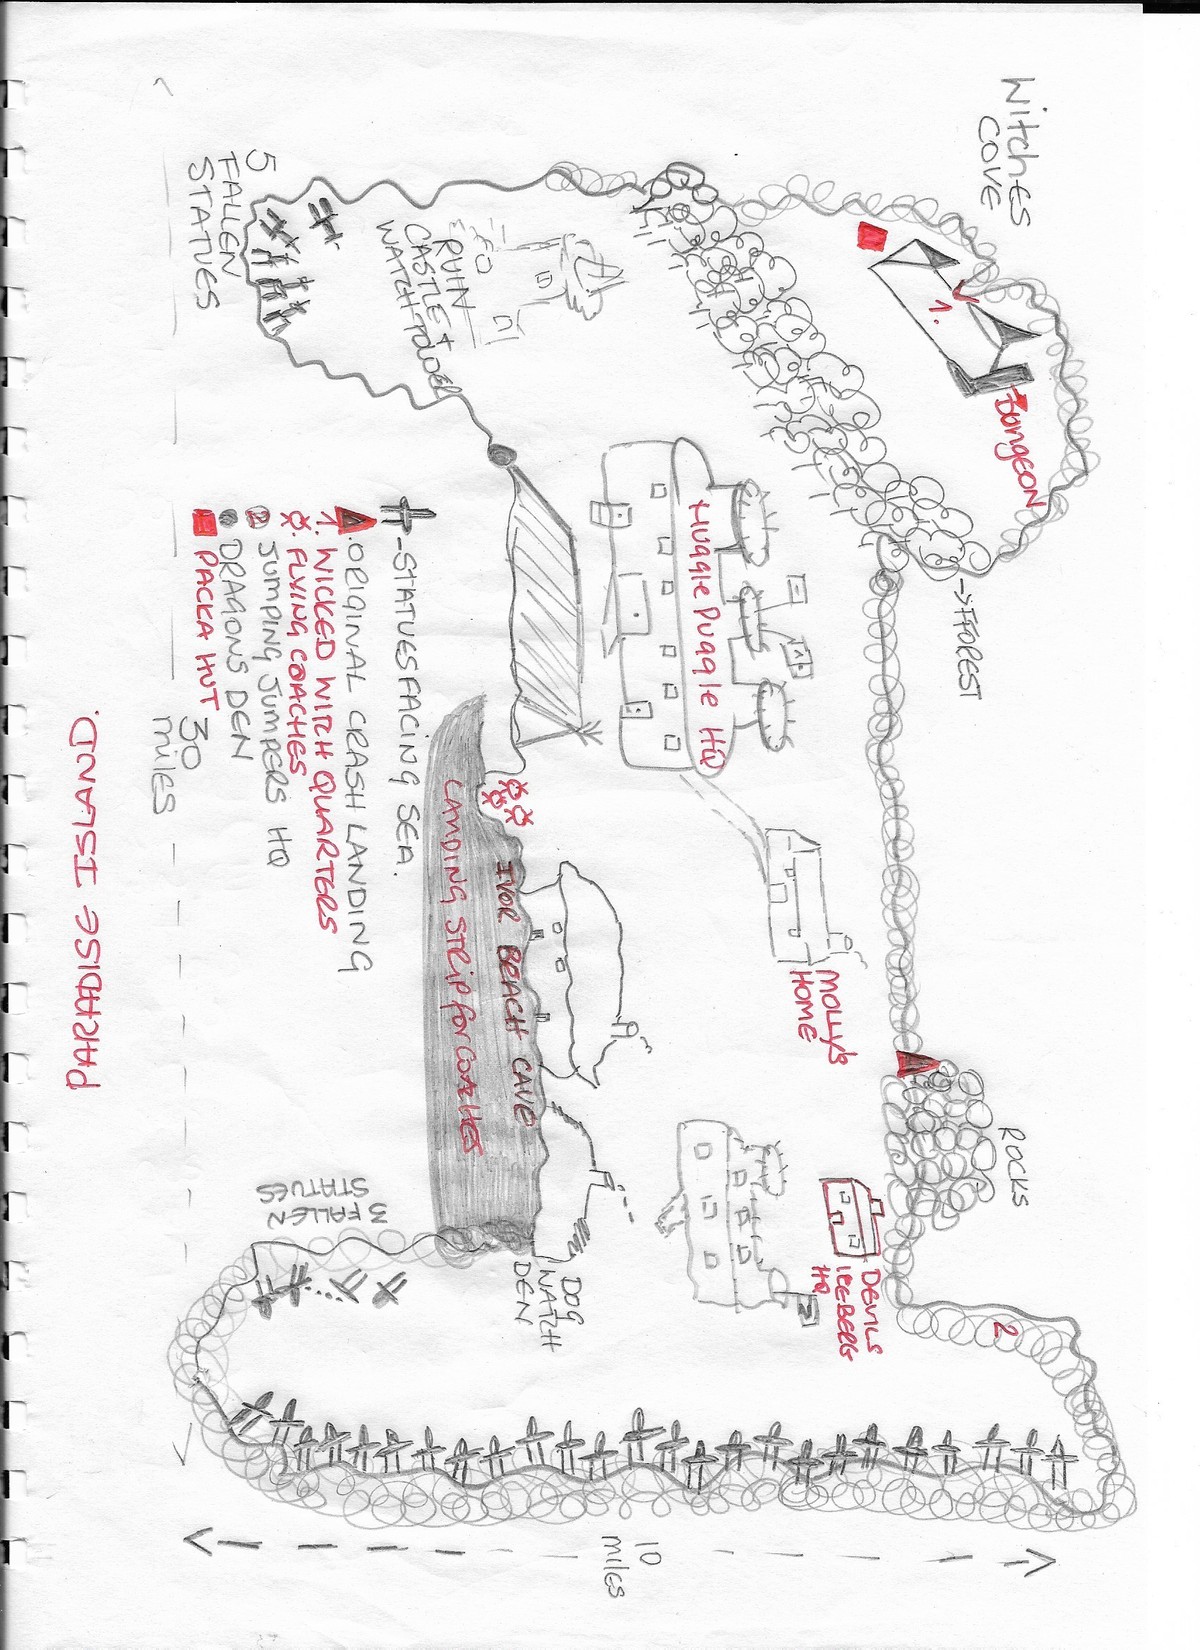 Witches
COVE
1.
Dungeon
→ FOREST
ROCKS
2
DEVILS
ICEBERG
HQ
MOLLY'S
HOME
Huggle Puggle HQ
RUIN
CASTLE +
WATCH TOWER
5
FALLEN
STATUES
IVOR BEACH CAVE
LANDING STRIP for COACHES
DOG
WATCH
DEN
3 FALLEN
STATUES
-STATUES FACING SEA.
ORIGINAL CRASH LANDING
1. WICKED WITCH QUARTERS
FLYING COACHES
2 JUMPING JUMPERS HQ
DRAGONS DEN
PACKA HUT
30
miles
10
miles
PARADISE ISLAND.